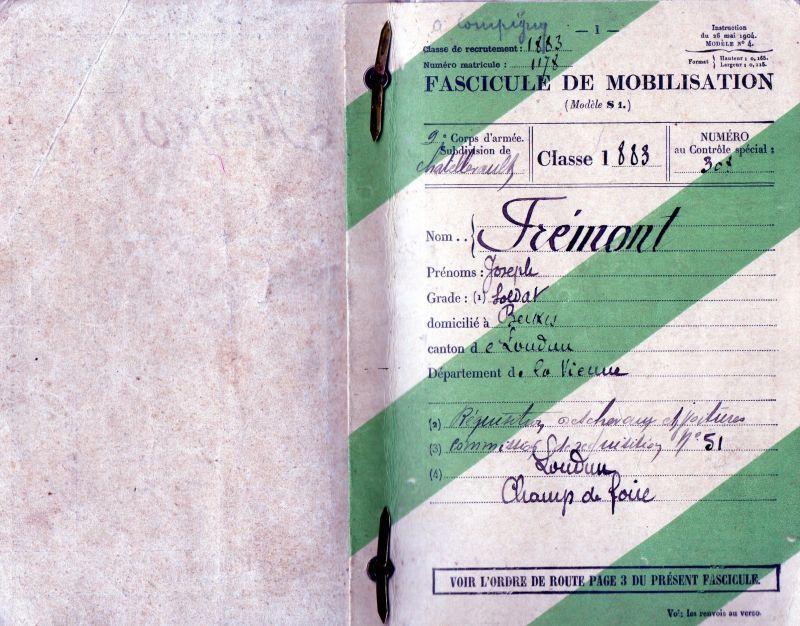 — 1 —
Instruction
du 26 mai 1904.
MODÈLE N° 4.
Format { Hauteur : 0,165.
Largeur : 0,118.
Classe de recrutement : 1883
Numéro matricule : 1178
FASCICULE DE MOBILISATION
(Modèle S 1.)
9e Corps d'armée.
Subdivision de
Chatellerault
Classe 1883
NUMÉRO
au Contrôle spécial :
Nom .. { Frémont
Prénoms : Joseph
Grade : (1) Soldat
domicilié à
canton de Loudun
Département de la Vienne
(2) Réquisition Voitures
(3) Commission Réquisition N° 51
(4) Loudun
Champ de foire
VOIR L'ORDRE DE ROUTE PAGE 3 DU PRÉSENT FASCICULE.
Voir les renvois au verso.